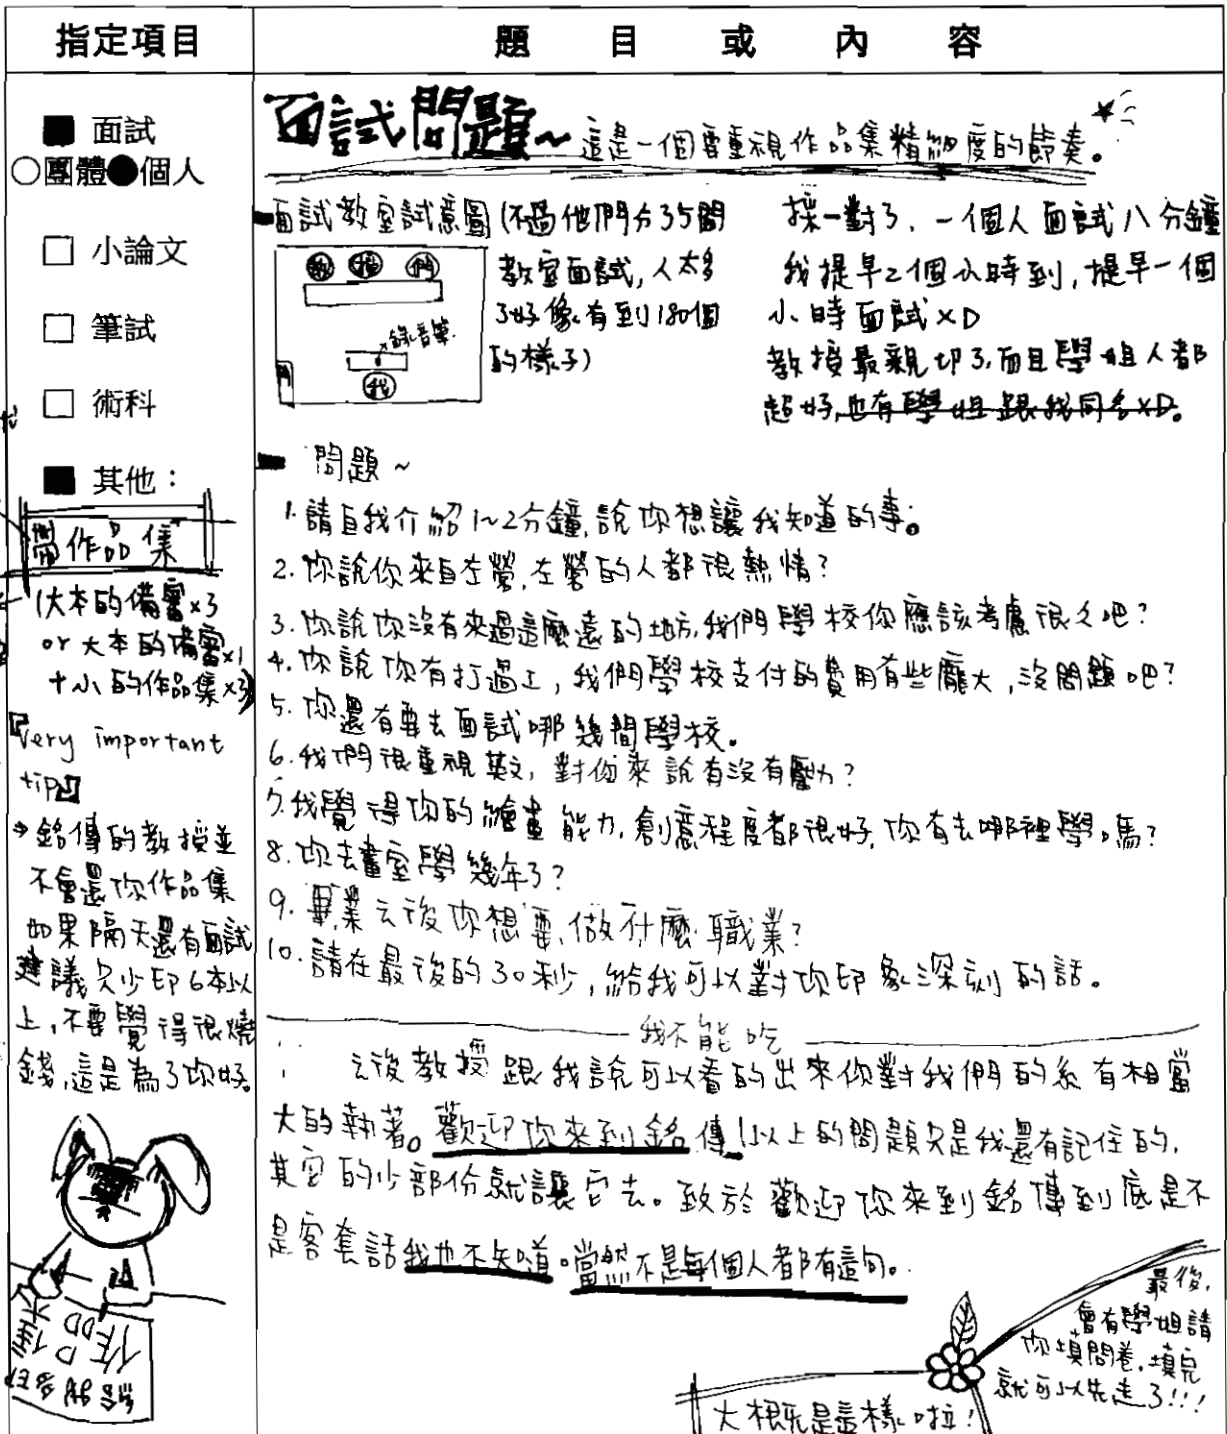 指定項目
題目或內容
■ 面試
○團體●個人
□ 小論文
□ 筆試
□ 術科
■ 其他：
帶作品集
(大本的備審x3
or 大本的備審x1
+小的作品集x3)
『very important
tip』
→銘傳的教授並
不會還你作品集
如果隔天還有面試
建議欠少印6本以
上,不要覺得很燒
錢,這是為了你好。
作品集
面試問題~這是一個要重視作品集精細度的節奏。
面試教室試意圖(不過他們分了5間
教室面試,人太多
了好像有到180個
的樣子)
教 授 們
錄音筆
門
我
採一對3,一個人面試八分鐘
我提早2個小時到,提早一個
小時面試XD
教授最親切了,而且學姐人都
超好,也有學姐跟我同名XD。
問題~
1.請自我介紹1~2分鐘,說你想讓我知道的事。
2.你說你來自左營,左營的人都很熱情?
3.你說你沒有來過這麼遠的地方,我們學校你應該考慮很久吧?
4.你說你有打過工,我們學校支付的費用有些龐大,沒問題吧?
5.你還有要去面試哪幾間學校。
6.我們很重視英文,對你來說有沒有壓力?
7.我覺得你的繪畫能力,創意程度都很好,你有去哪裡學嗎?
8.你去畫室學幾年了?
9.畢業之後你想要做什麼職業?
10.請在最後的30秒,給我可以對你印象深刻的話。
我不能吃
之後教授跟我說可以看的出來你對我們的系有相當
大的執著。歡迎你來到銘傳!以上的問題只是我還有記住的,
其它的少部份就讓它去。致於歡迎你來到銘傳到底是不
是客套話我也不知道。當然不是每個人都有這句。
最後,
會有學姐請
你填問卷,填完
就可以先走了!!!
大概就是這樣啦!